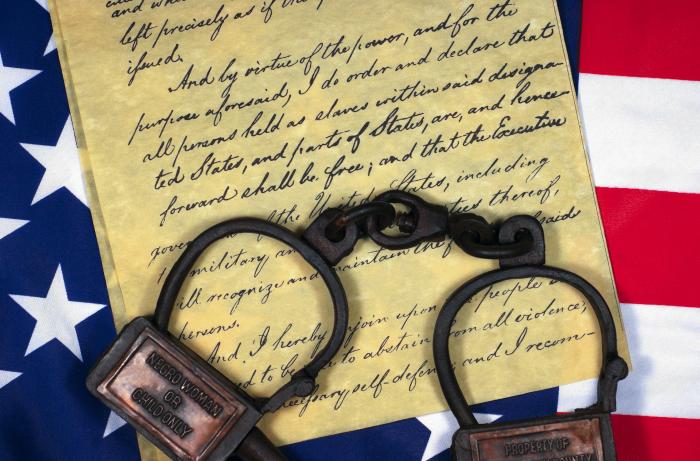 left precisely as if
issued.
And by virtue of the power, and for the
purpose aforesaid, I do order and declare that
all persons held as slaves within said designa-
ted States, and parts of States, are, and hence-
forward shall be free; and that the Executive
of the United States, including
military and thereof,
will recognize and maintain the
persons.
And I hereby upon people
to abstain from all violence,
self-defen and I recom-
NEGRO WOMAN
OR
CHILD ONLY
PROPERTY OF